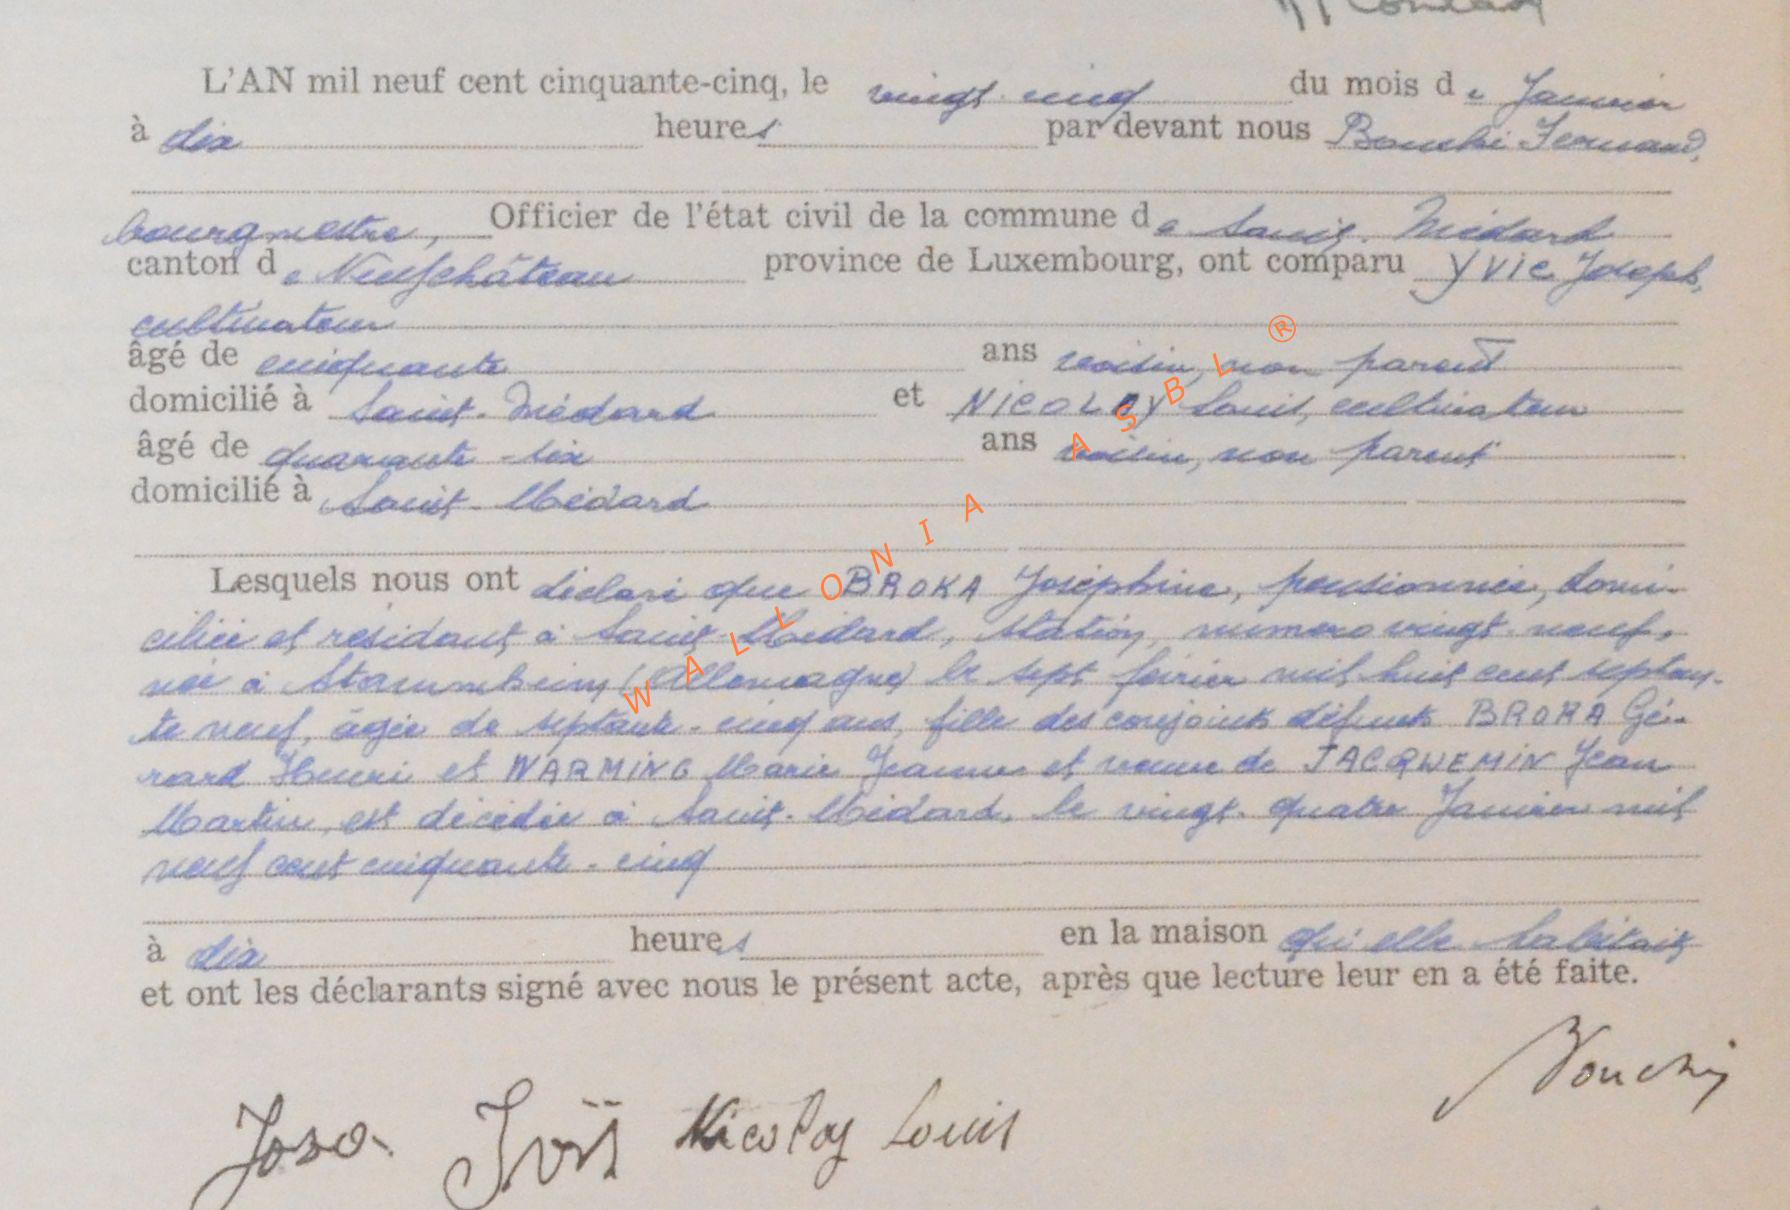 L'AN mil neuf cent cinquante-cinq, le vingt-cinq du mois de Janvier
à dix heures par devant nous Bouché Fernand,
bourgmestre, Officier de l'état civil de la commune de Saint-Médard
canton de Neufchâteau province de Luxembourg, ont comparu Joseph,
cultivateur
âgé de cinquante ans voisin, non parent
domicilié à Saint-Médard et NICOLAY Louis, cultivateur
âgé de quarante-six ans voisin, non parent
domicilié à Saint-Médard
Lesquels nous ont déclaré que BROKA Joséphine, pensionnée, domi-
ciliée et résidant à Saint-Médard, station, numéro vingt-neuf,
née à Stammheim (Allemagne) le sept février mil huit cent septan-
te neuf, âgée de septante-cinq ans, fille des conjoints défunts BROKA Gé-
rard Henri et WARMING Marie Jeanne et veuve de JACQUEMIN Jean
Martin, est décédée à Saint-Médard, le vingt-quatre Janvier mil
neuf cent cinquante-cinq
à dix heures en la maison qu'elle habitait
et ont les déclarants signé avec nous le présent acte, après que lecture leur en a été faite.
Bouché
Nicolay Louis
WALLONIA ASBL ®